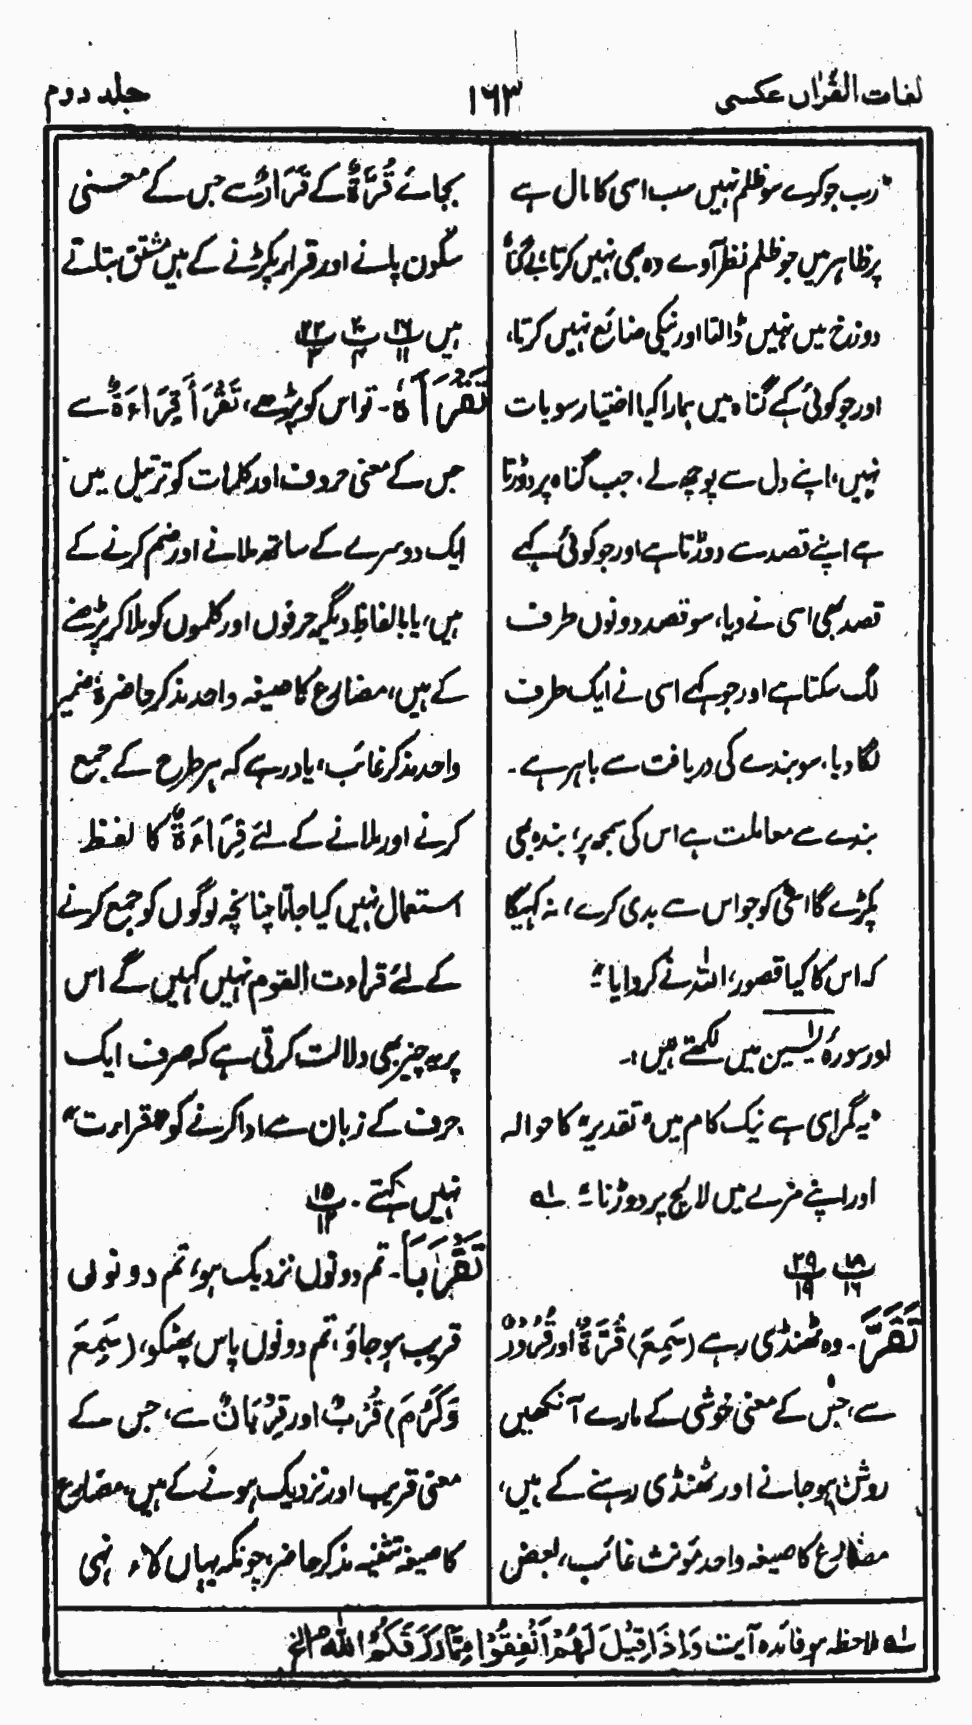 لغات القرآن عکسی
۱۶۳
جلد دوم
"رب جو کرے سو ظلم نہیں سب اسی کا مال ہے
پر ظاہر میں جو ظلم نظر آوے وہ بھی نہیں کرتا، بے گناہ
دوزخ میں نہیں ڈالتا اور نیکی ضائع نہیں کرتا،
اور جو کوئی کہے گناہ میں ہمارا کیا اختیار سو بات
نہیں، اپنے دل سے پوچھ لے، جب گناہ پر دوڑتا
ہے اپنے قصد سے دوڑتا ہے اور جو کوئی کہے
قصد بھی اسی نے دیا، سو قصد دونوں طرف
لگ سکتا ہے اور جو کہے اسی نے ایک طرف
لگا دیا، سو بندے کی دریافت سے باہر ہے۔
بندے سے معاملت ہے اس کی سمجھ پر، بندہ بھی
پکڑے گا اسی کو جو اس سے بدی کرے، نہ کہیگا
کہ اس کا کیا قصور، اللہ نے کروایا"
اور سورۂ یٰسین میں لکھتے ہیں:۔
"یہ گمراہی ہے نیک کام میں "تقدیر" کا حوالہ
اور اپنے مزے میں لالچ پر دوڑنا" ۔ لہ
۱۸/۱۶ ۲۹/۱۹
تَقَرَّ۔ وہ ٹھنڈی رہے (سَمِعَ) قُرَّۃٌ اور قُرُوْرٌ
سے، جس کے معنی خوشی کے مارے آنکھیں
روشن ہو جانے اور ٹھنڈی رہنے کے ہیں،
مضارع کا صیغہ واحد مؤنث غائب، بعض
بجائے قُرَّۃٌ کے قَرَارٌ سے جس کے معنی
سکون پانے اور قرار پکڑنے کے ہیں مشتق بتاتے
ہیں ۱۶/۱۱ ۲۰/۴ ۲۲/۳
تَقْرَأَہٗ۔ تو اس کو پڑھے، تَقْرَأَ قِرَاءَۃٌ سے
جس کے معنی حروف اور کلمات کو ترتیل میں
ایک دوسرے کے ساتھ ملانے اور ضم کرنے کے
ہیں، یا بالفاظِ دیگر حرفوں اور کلموں کو ملا کر پڑھنے
کے ہیں، مضارع کا صیغہ واحد مذکر حاضر ہٗ ضمیر
واحد مذکر غائب، یاد رہے کہ ہر طرح کے جمع
کرنے اور ملانے کے لئے قِرَاءَۃٌ کا لفظ
استعمال نہیں کیا جاتا چنانچہ لوگوں کو جمع کرنے
کے لئے قراءت القوم نہیں کہیں گے اس
پر یہ چیز بھی دلالت کرتی ہے کہ صرف ایک
حرف کے زبان سے ادا کرنے کو "قراءت"
نہیں کہتے۔ ۱۵/۱۲
تَقْرَبَا۔ تم دونوں نزدیک ہو، تم دونوں
قریب ہو جاؤ، تم دونوں پاس پھٹکو، (سَمِعَ
وَکَرُمَ) قُرْبٌ اور قِرْبَانٌ سے، جس کے
معنی قریب اور نزدیک ہونے کے ہیں، مضارع
کا صیغہ تثنیہ مذکر حاضر، چونکہ یہاں لاء نہی
لہ ملاحظہ ہو فائدہ آیت وَاِذَا قِیْلَ لَہُمْ اَنْفِقُوْا مِمَّا رَزَقَکُمُ اللہُ الخ